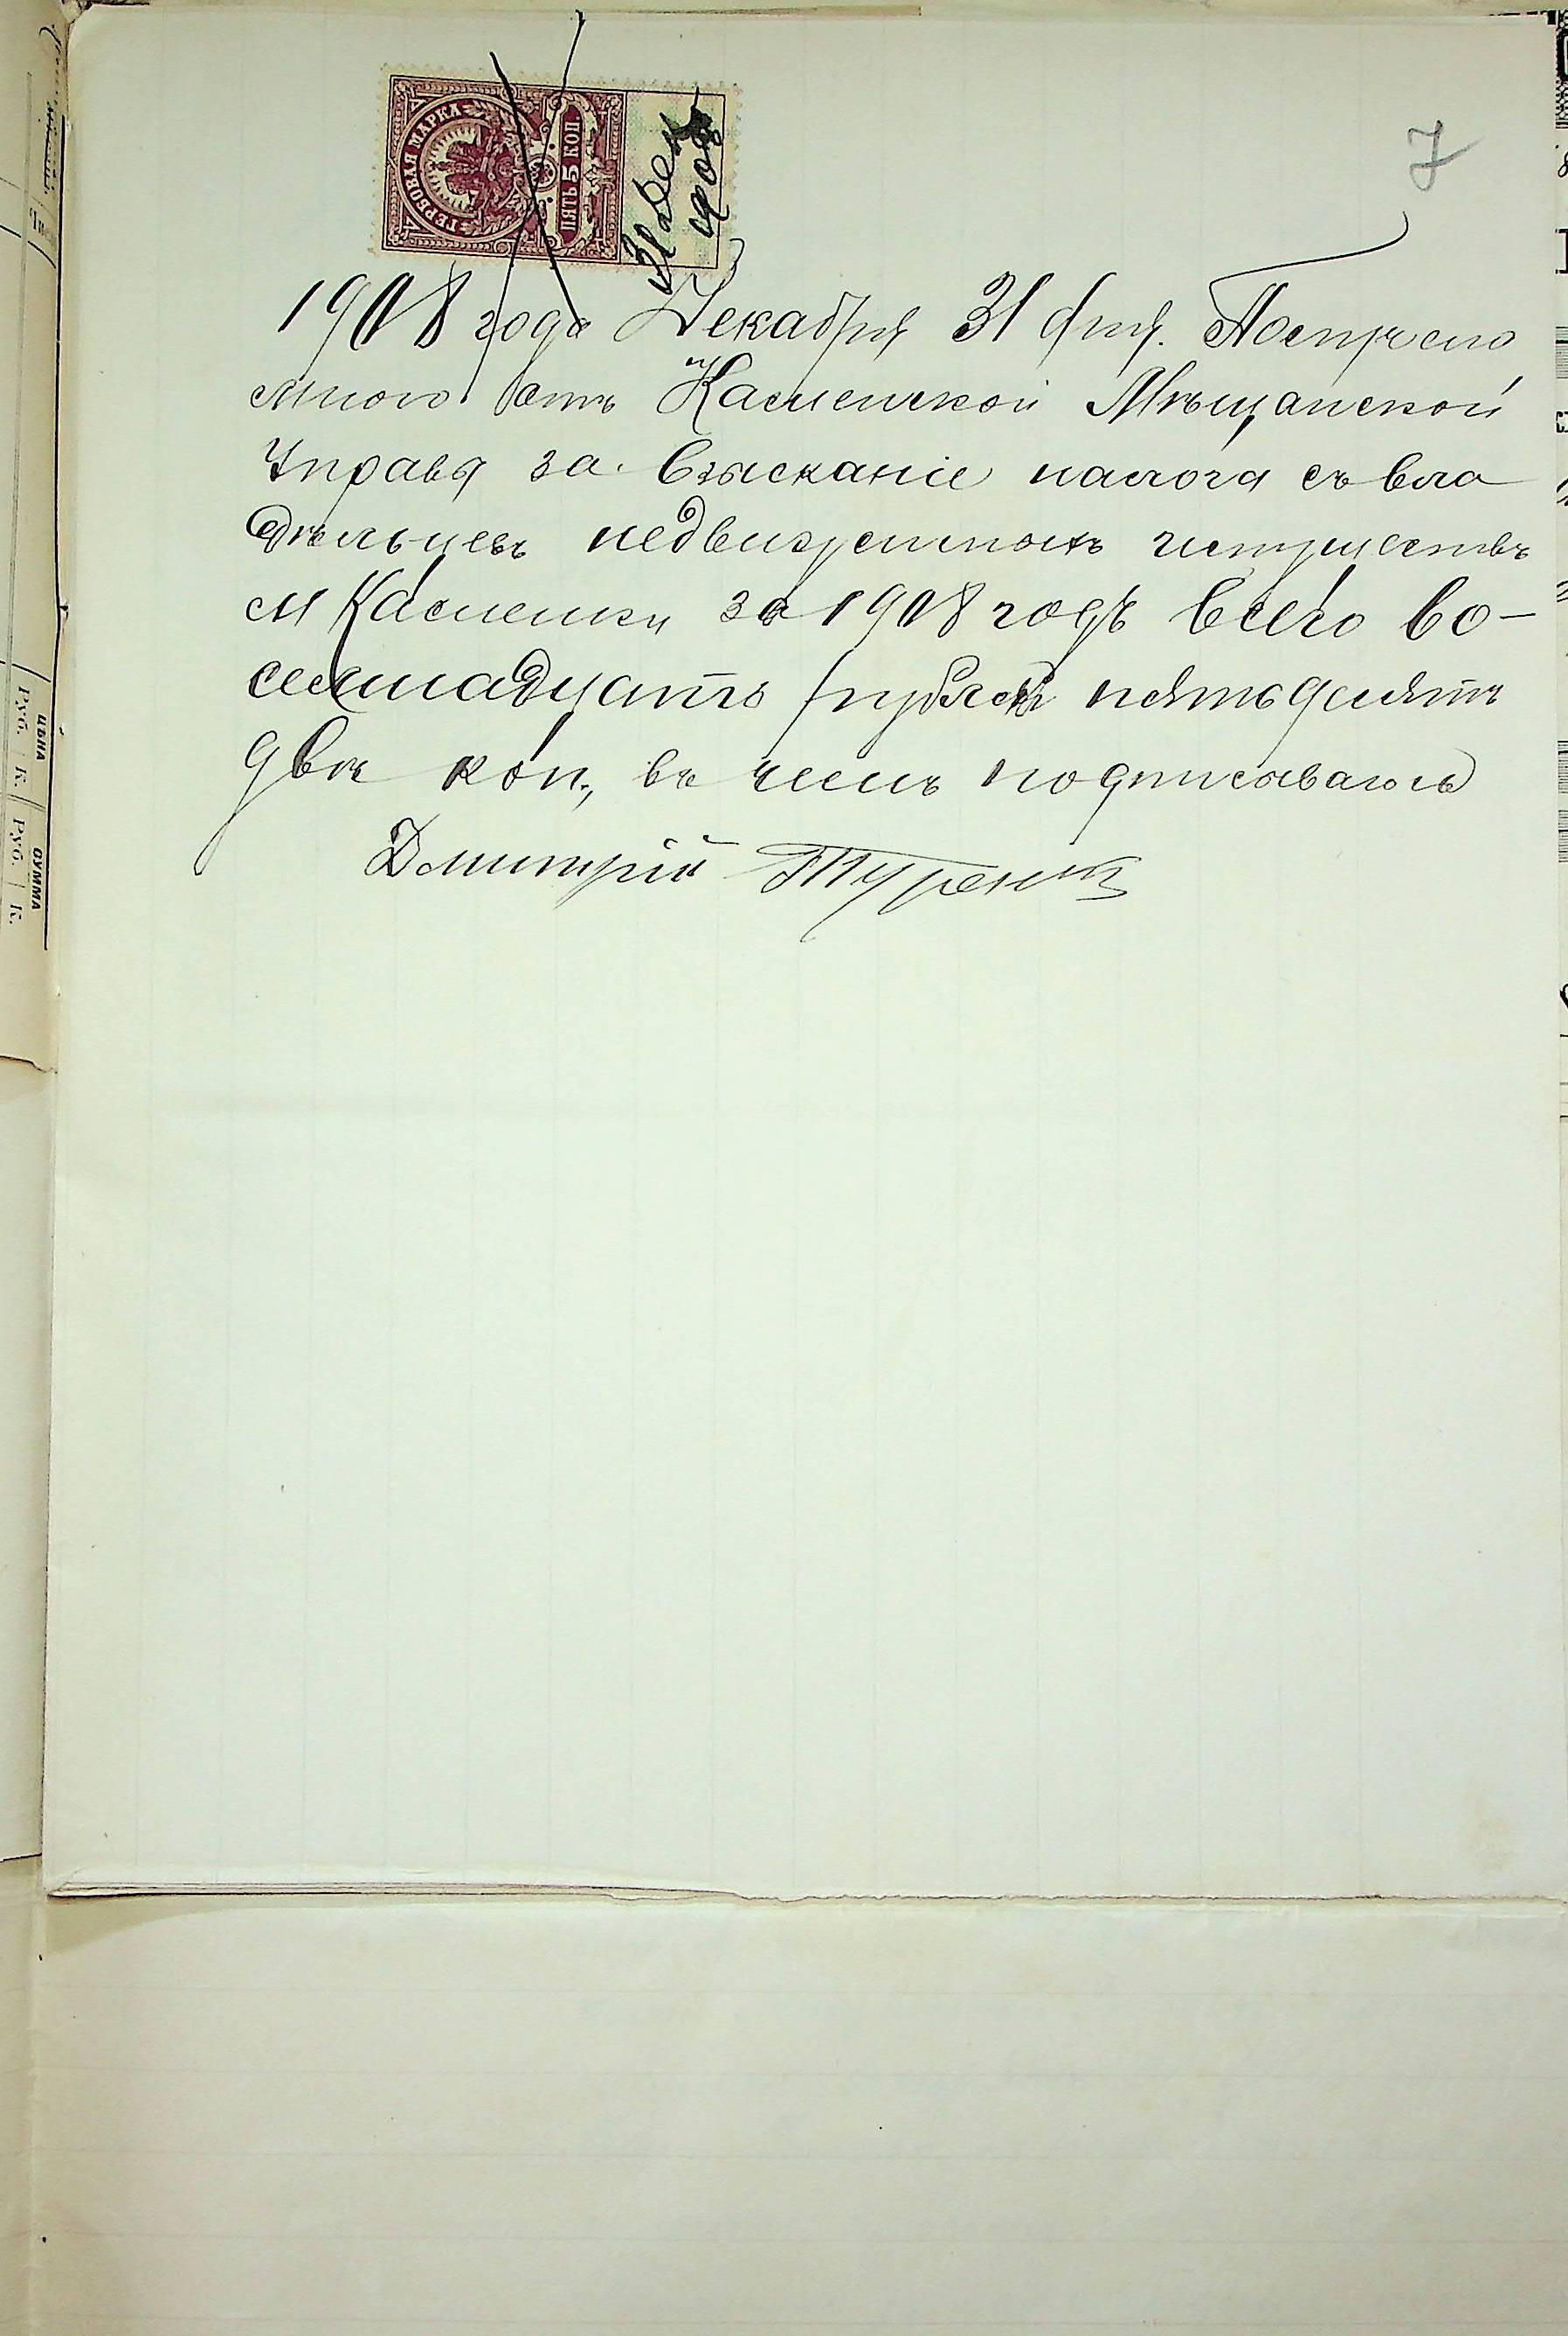 7
ГЕРБОВАЯ МАРКА
ПЯТЬ 5 КОП.
31 Дек
1908
1908 года Декабря 31 дня. Поступило
мною отъ Каменской Мѣщанской
Управы за взысканіе налога съ вла
дѣльцевъ недвижимыхъ имуществъ
м Каменки за 1908 годъ всего во-
семнадцать рублей пятьдесятъ
двѣ коп., въ чемъ подписываюсь
Дмитрій
ЦѢНА
Руб. К.
СУММА
Руб. К.